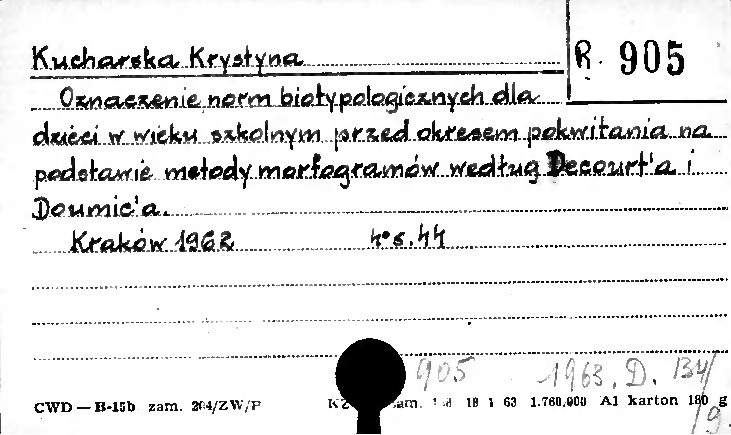 Kucharska Krystyna
R. 905
Oznaczenie norm biotypologicznych dla
dzieci w wieku szkolnym przed okresem pokwitania na
podstawie metody morfogramów według Decourt'a i
Doumic'a.
Kraków 1962 4° s. 44
905 1963. D. 134/
9.
CWD — B-15b zam. 204/ZW/P 18 1 63 1.760.000 A1 karton 180 g